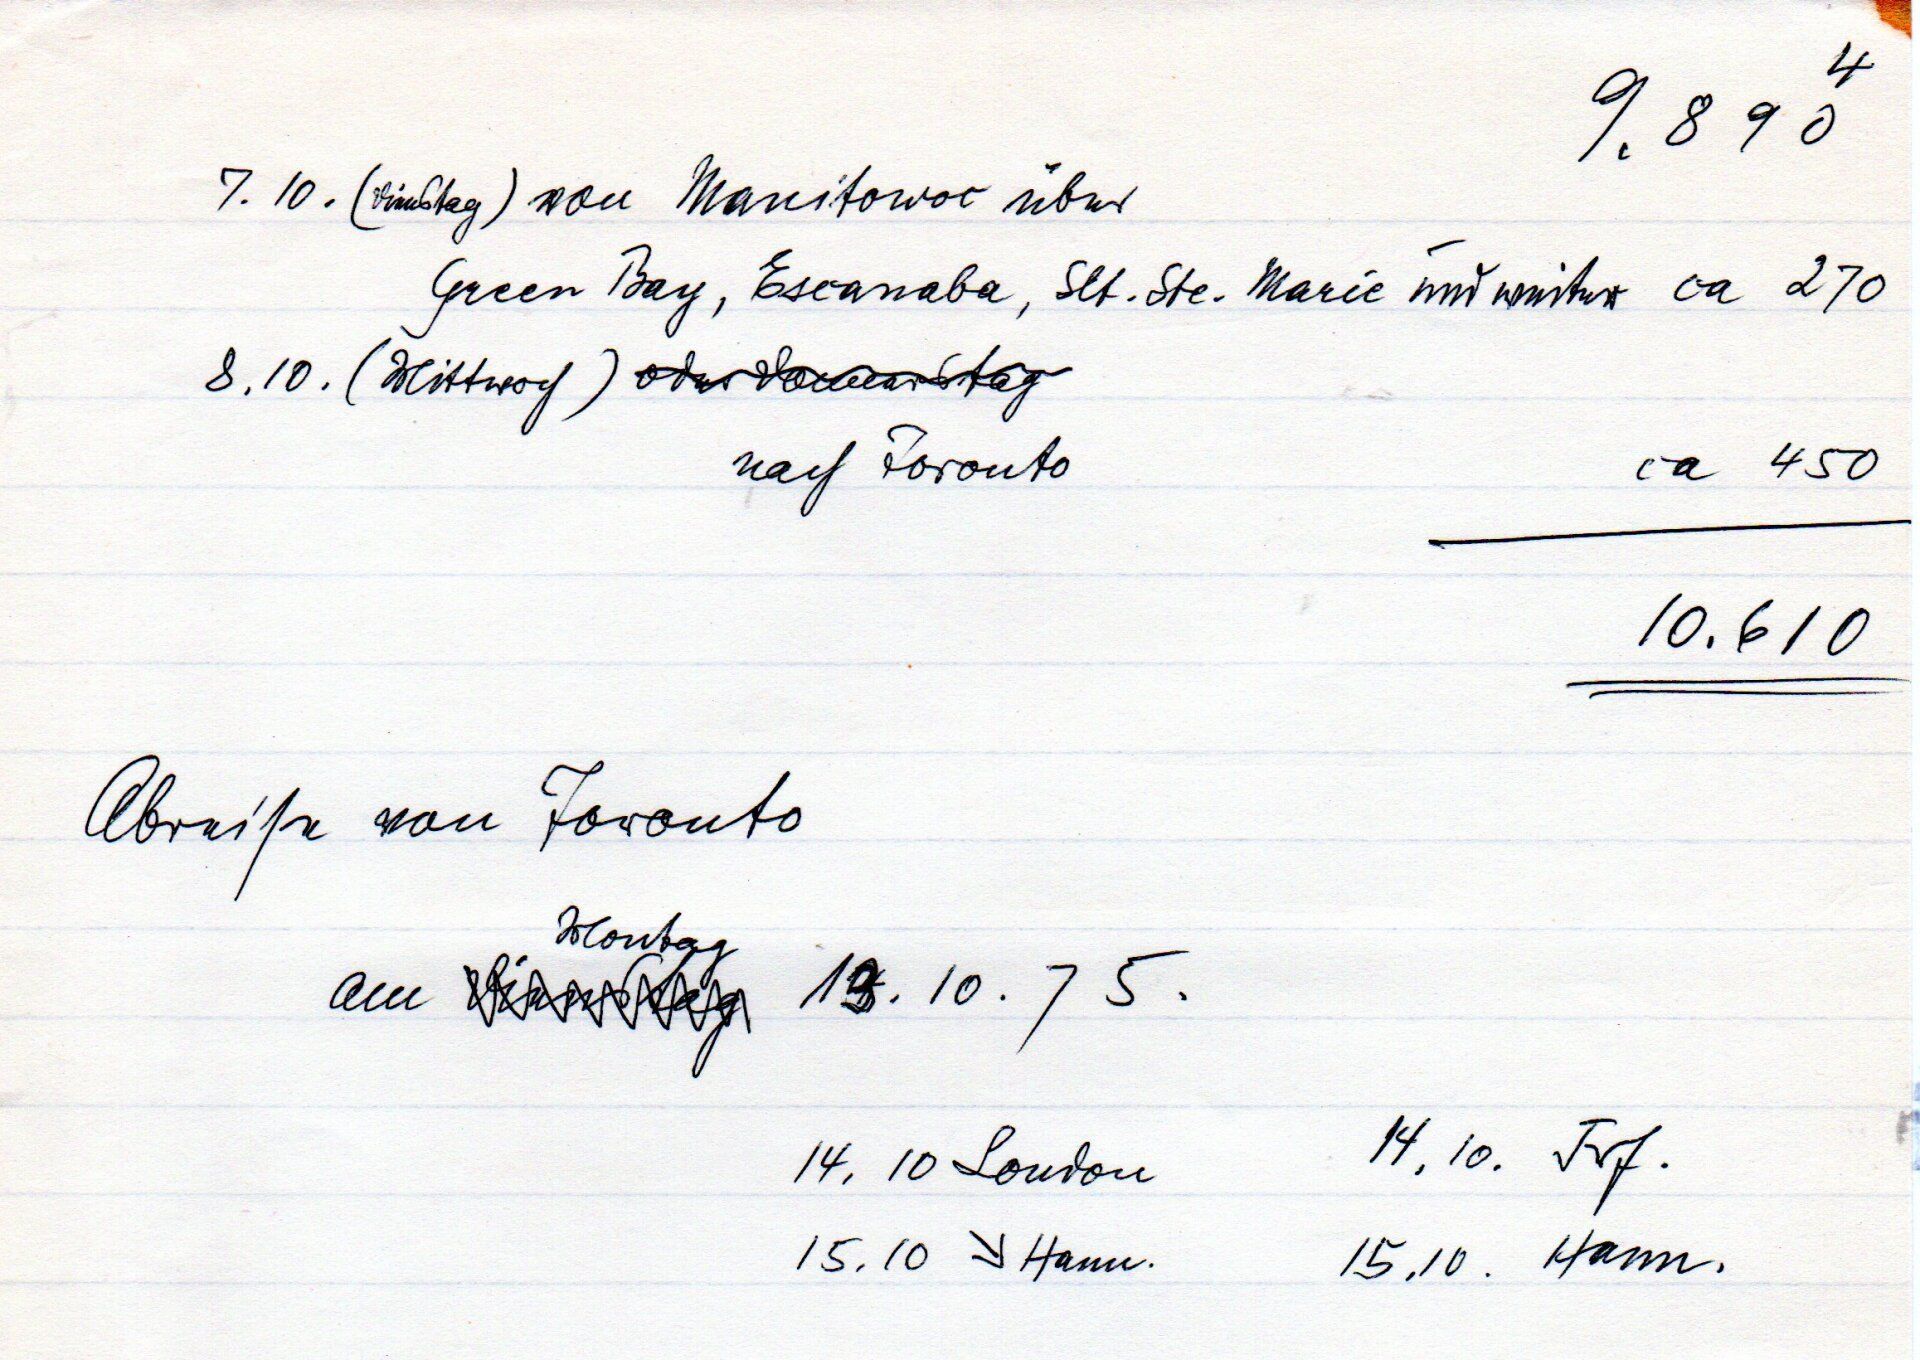 4
9.890
7.10. (Dienstag) von Manitowoc über
Green Bay, Escanaba, Slt. Ste. Marie und weiter ca 270
8.10. (Mittwoch) oder Donnerstag
nach Toronto ca 450
10.610
Abreise von Toronto
Montag
am Dienstag 13.10.75.
14.10 London 14.10. Frf.
15.10 ↘ Hann. 15.10. Hann.